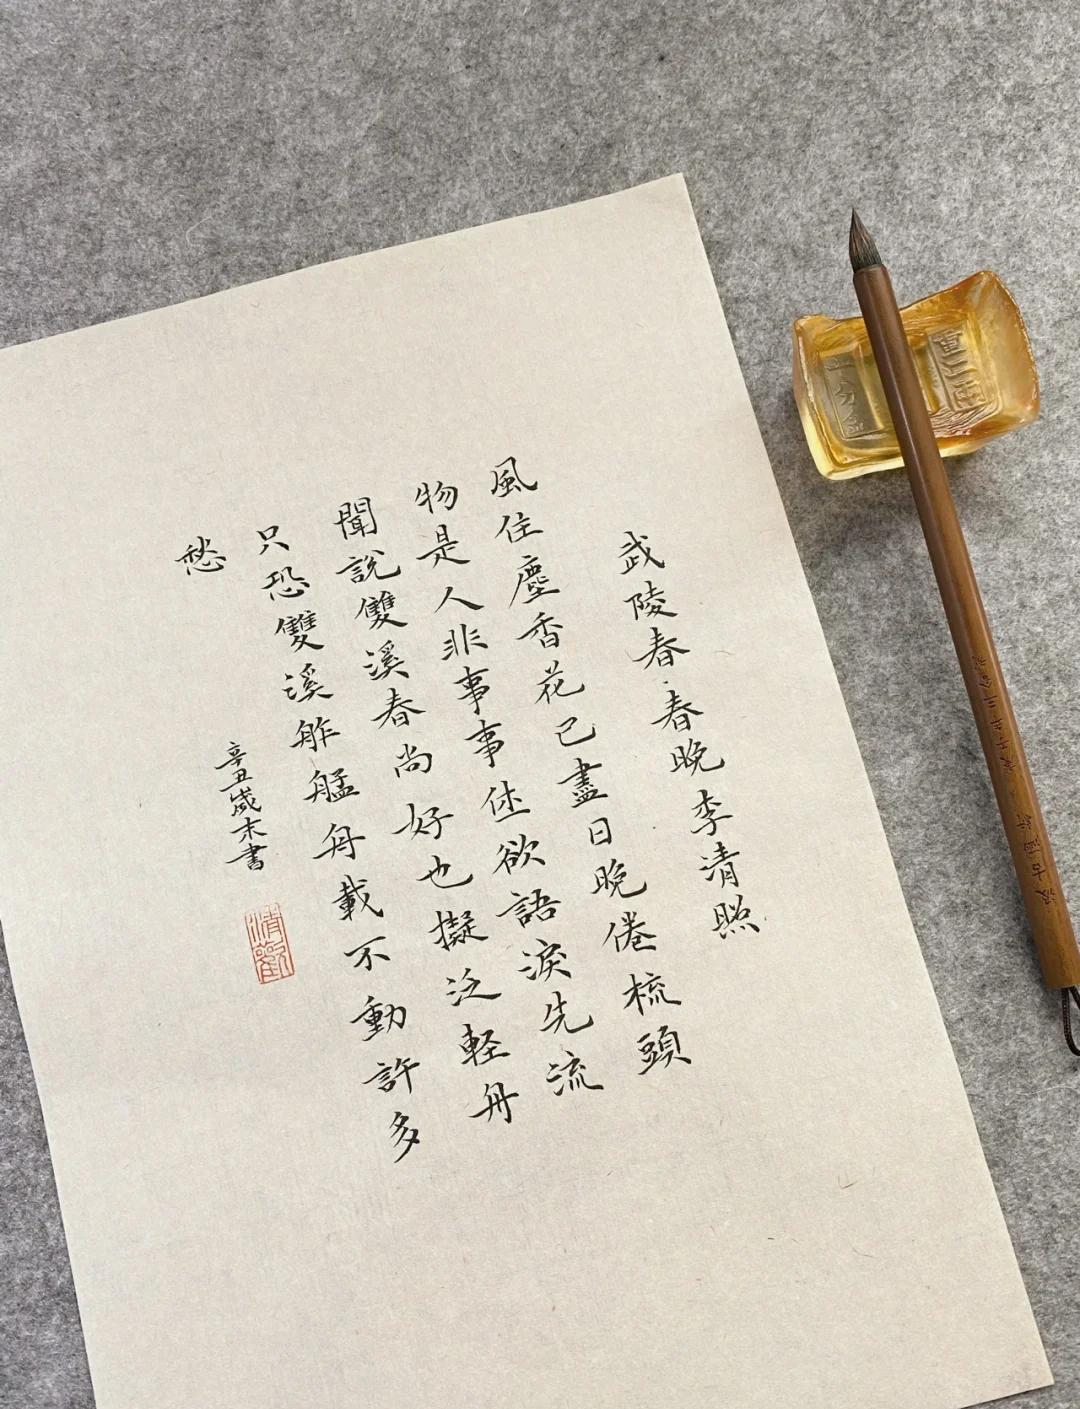 武陵春·春晚李清照
風住塵香花已盡日晚倦梳頭
物是人非事事休欲語淚先流
聞說雙溪春尚好也擬泛軽舟
只恐雙溪舴艋舟載不動許多
愁
辛丑歲末書
清歡